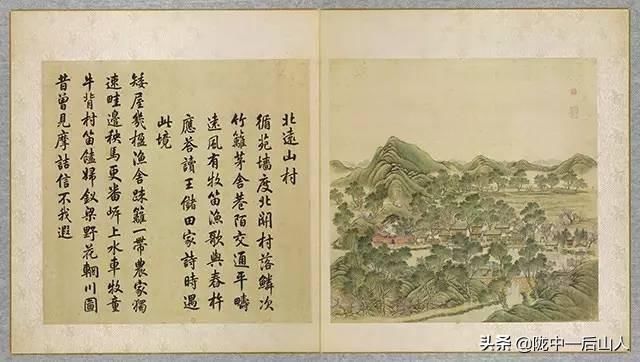 北遠山村
循苑墻度北關村落鱗次
竹籬茅舍巷陌交通平疇
遠風有牧笛漁歌與舂杵
應答讀王儲田家詩時遇
此境
矮屋幾楹漁舍踈籬一帶農家獨
速畦邊秧馬更番岸上水車牧童
牛背村笛饁婦釵梁野花輞川圖
昔曾見摩詰信不我遐
头条 @陇中一后山人